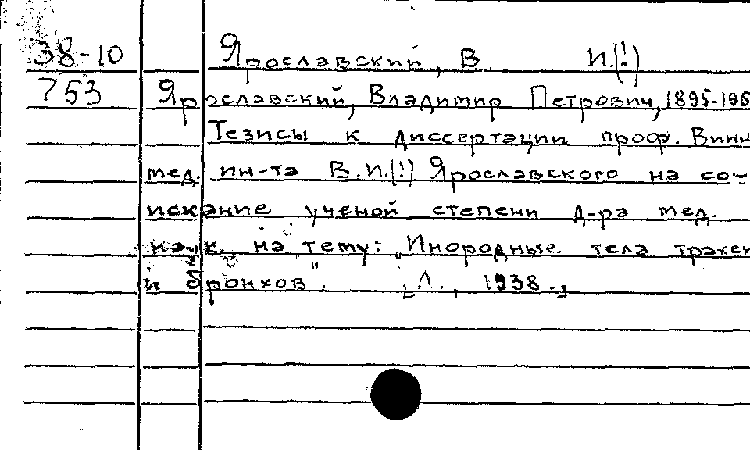 38-10 Ярославский, В. И.(!)
753 Ярославский, Владимир Петрович, 1895-195
Тезисы к диссертации проф. Винн
мед. ин-та В.И.(!) Ярославского на со-
искание ученой степени д-ра мед.
наук на тему: „Инородные тела трахеи
и бронхов". [Л., 1938.]